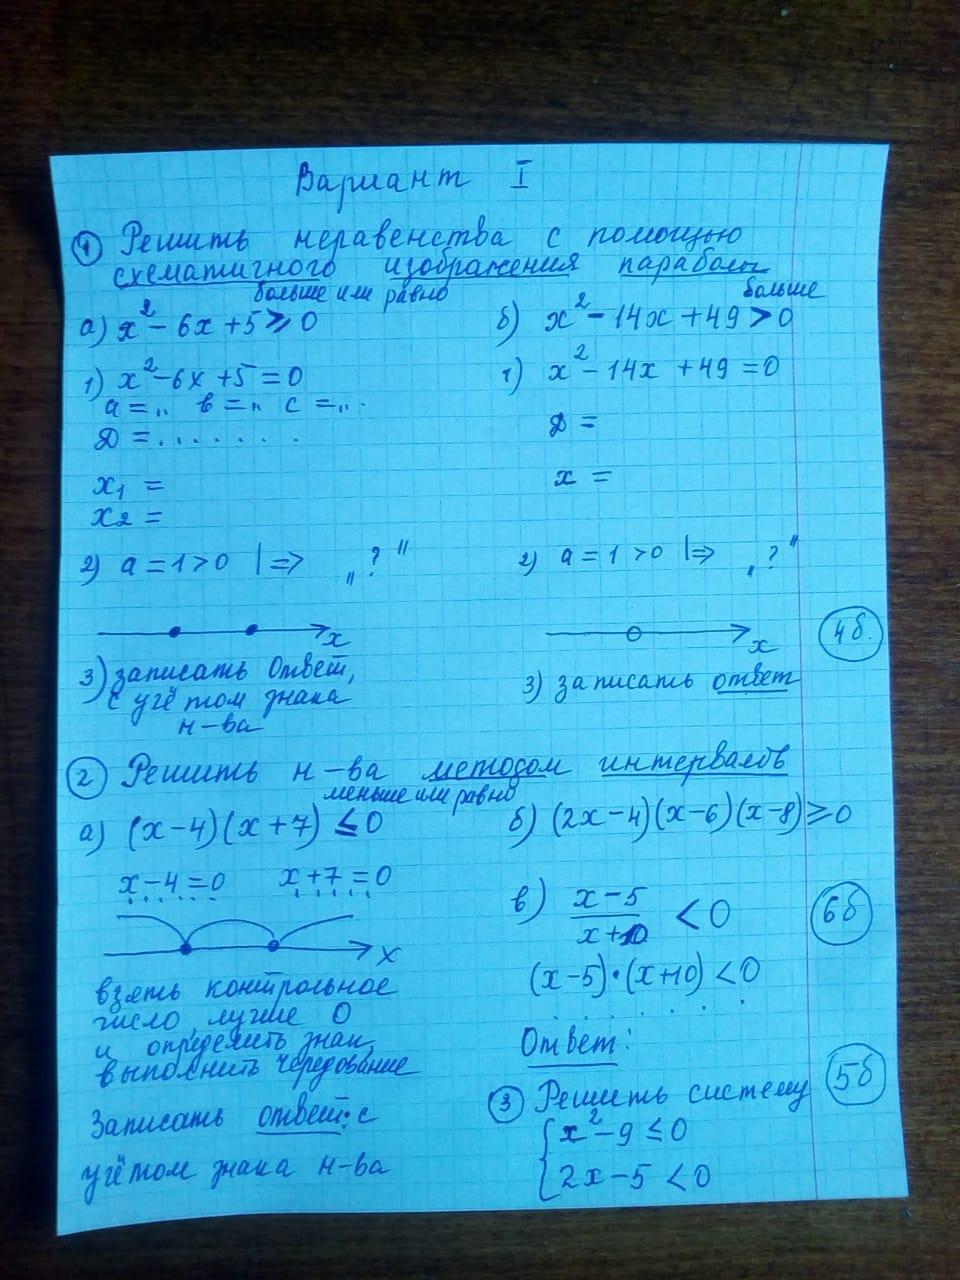 Вариант I
① Решить неравенства с помощью
схематичного изображения параболы
больше или равно
а) x² - 6x + 5 ⩾ 0
1) x² - 6x + 5 = 0
a = „ в = „ c = „ .
D = . . . . . . .
x₁ =
x₂ =
2) a = 1 > 0 |⇒ „ ? "
x
3) записать ответ,
с учётом знака
н-ва
больше
б) x² - 14x + 49 > 0
1) x² - 14x + 49 = 0
D =
x =
2) a = 1 > 0 |⇒ „ ? "
x
3) записать ответ
4б.
② Решить н-ва методом интервалов
меньше или равно
а) (x - 4)(x + 7) ≤ 0
x - 4 = 0 x + 7 = 0
x
взять контрольное
число, лучше 0
и определить знак,
выполнить чередование
Записать ответ: с
учётом знака н-ва
б) (2x - 4)(x - 6)(x - 8) ≥ 0
в) (x - 5)/(x + 10) < 0
(x - 5) · (x + 10) < 0
. . . . . .
Ответ:
6б
③ Решить систему
{ x² - 9 ≤ 0
2x - 5 < 0
5б